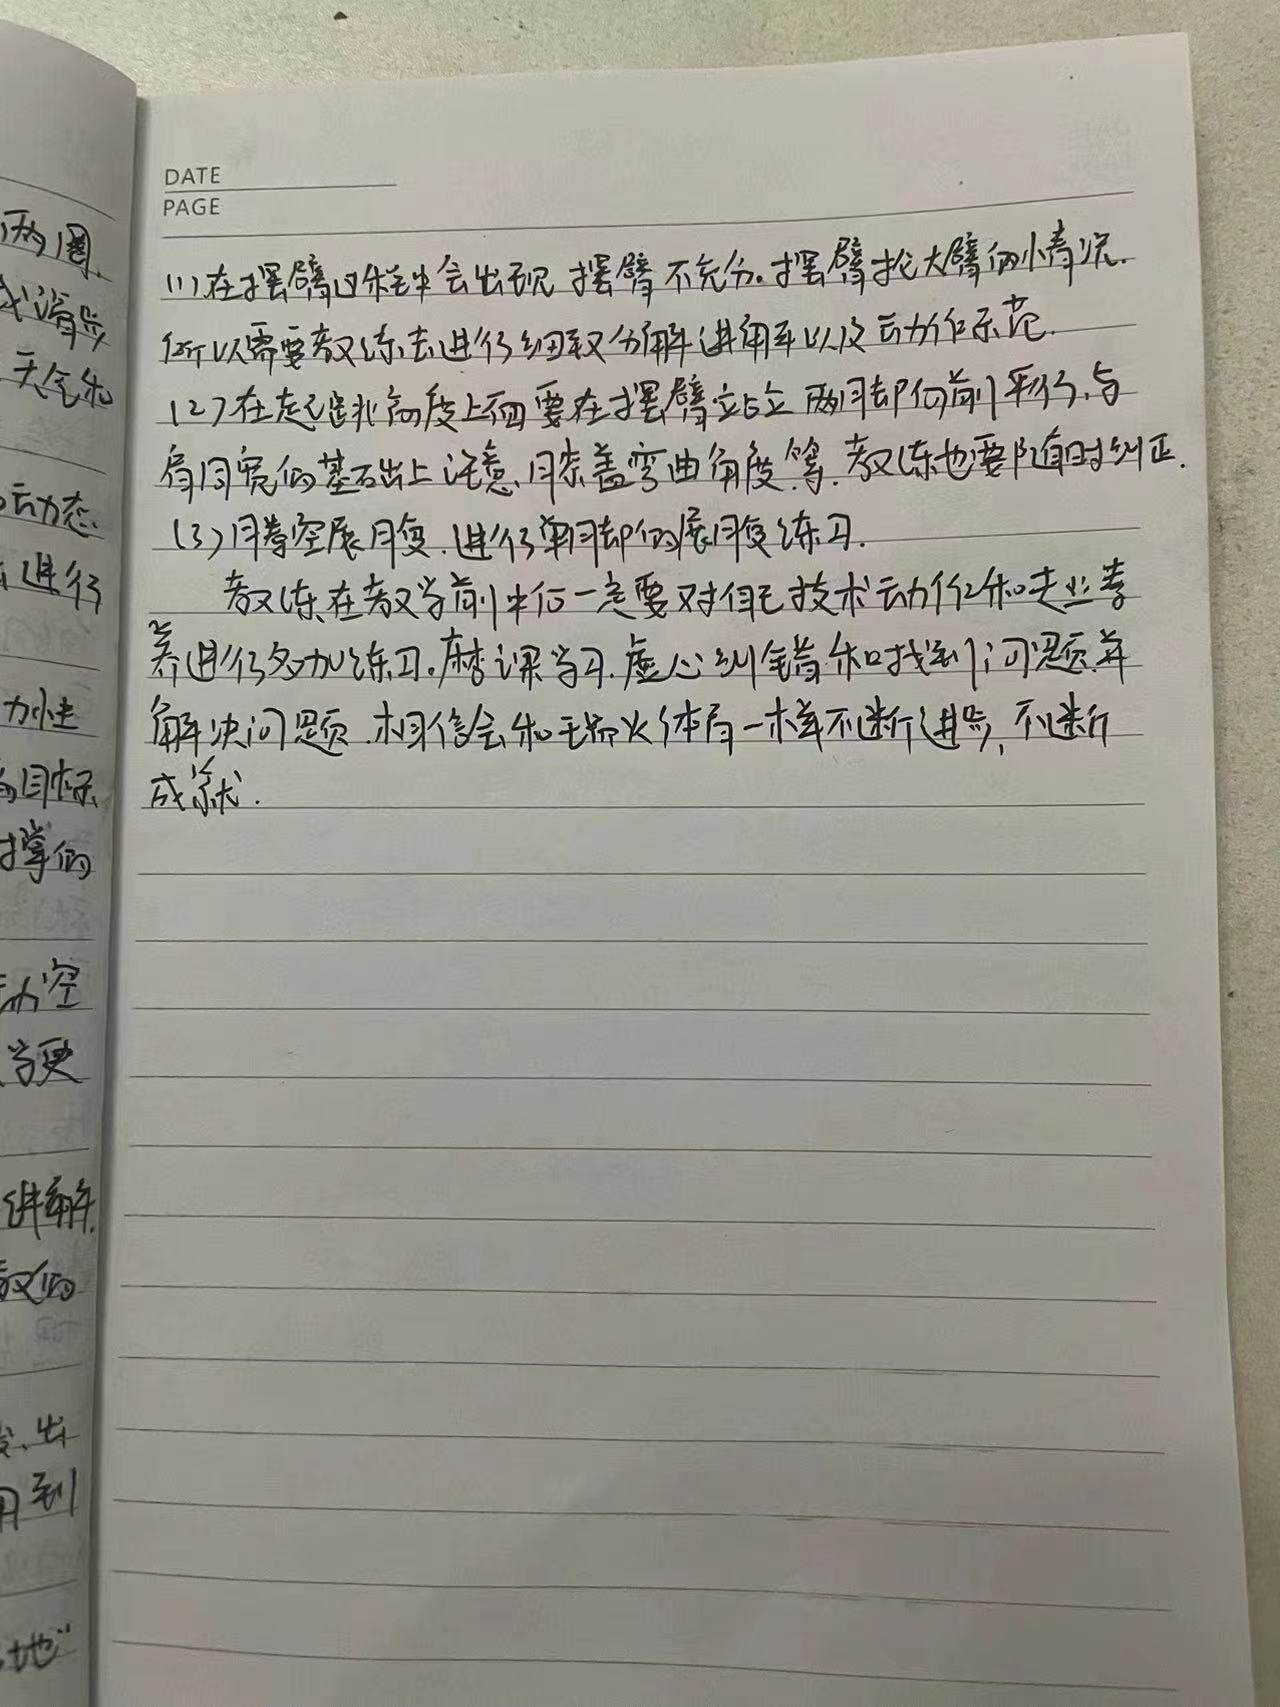 DATE
PAGE
(1)在摆臂过程中会出现摆臂不充分。摆臂抡大臂的情况.
所以需要教练去进行细致分解讲解以及动作示范.
(2)在起跳高度上面要在摆臂站立两脚向前平行,与
肩同宽的基础上注意、膝盖弯曲角度等.教练也要随时纠正.
(3)腾空展腹.进行单脚的展腹练习.
教练在教学前中后一定要对自己技术动作和专业素
养进行多加练习。磨课学习.虚心纠错和找到问题并
解决问题.相信会和 体育一样不断进步,不断
成就.
两圈.
天气和
动态.
进行
目标
撑的
空
讲解.
教的
出
到
地"